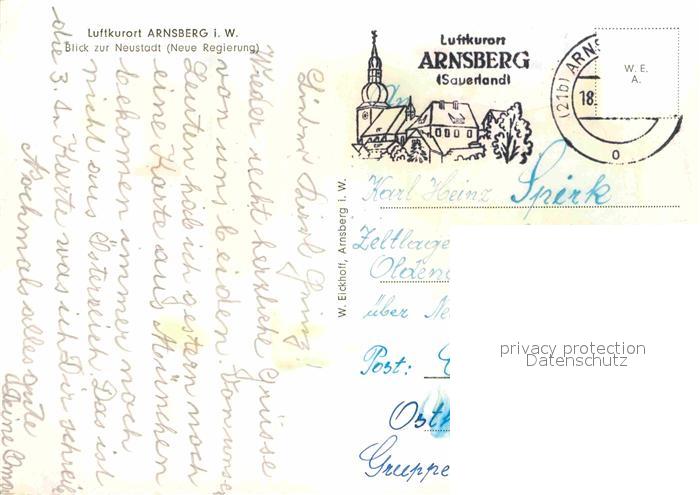 Luftkurort ARNSBERG i. W.
Blick zur Neustadt (Neue Regierung)
Wieder recht herzliche Grüsse
von uns beiden. Von unsern
Leuten hab ich gestern noch
eine Karte aus München
bekommen immer noch
nicht aus Österreich. Das ist
die 3. Karte was ich Dir schreib
Nochmal alles gute
Deine Oma
W. Eickhoff, Arnsberg i. W.
Luftkurort
ARNSBERG
(Sauerland)
(21b) ARNS
18.
W. E.
A.
An
Karl Heinz Spirk
Zeltlage
Olden
über Ne
Post:
Ost
Gruppe
privacy protection
Datenschutz